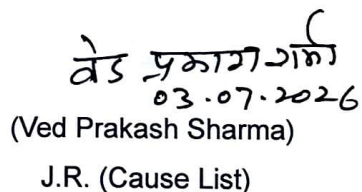 वेड प्रकाश शर्मा
03.07.2026
(Ved Prakash Sharma)
J.R. (Cause List)